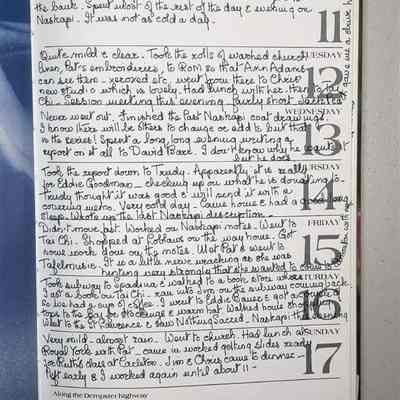 the bank. Spent most of the rest of the day & evening on
Naskapi. It was not as cold a day.
11
Quite mild & clear. Took the rolls of washed church
TUESDAY
linen, Pat's embroideries, to ROM so that Ann Adams
can see them - xeroxed etc. Went from there to Chris'
new studio which is lovely. Had lunch with her then to Tai
Chi. Session meeting this evening, fairly short
12
Never went out. Finished the last Naskapi coat drawings.
WEDNESDAY
I know there will be others to change or add to but that
is the series! Spent a long, long evening writing a
report on it all to David. I don't know why he wants it
but he does
13
Took the report down to Trudy. Apparently it is really
THURSDAY
for Eddie Goodman - checking up on what he is donating to.
Trudy thought it was good & will send it with a
covering memo. Very cold day. Came home & had a good long
sleep. Wrote up the last Naskapi description -
14
Didn't move fast. Worked on Naskapi notes. Went to
FRIDAY
Tai Chi. Shopped at Loblaws on the way home. Got
some work done on the notes. Met Pat & went to
Tafelmusik. I was a little nerve wracking as she was
hinting very strongly that she wanted to come
15
Took subway to Spadina & walked to a book store where
SATURDAY
I got a book on Tai Chi. ran into Jim on the subway coming back
so we had a cup of coffee. I went to Eddie Bauer & got a couple of
tops to the Bay for stockings & warm hat. Walked home
Went to the St Lawrence & saw Nothing Sacred. Naskapi this evening
16
Very mild - almost rain. Went to church. Had lunch at
SUNDAY
Royal York with Pat. Came in worked getting slides ready
for Ruth's class at Carleton. Jim & Chris came to dinner -
left early & I worked again until about 11 -
17
Along the Dempster highway